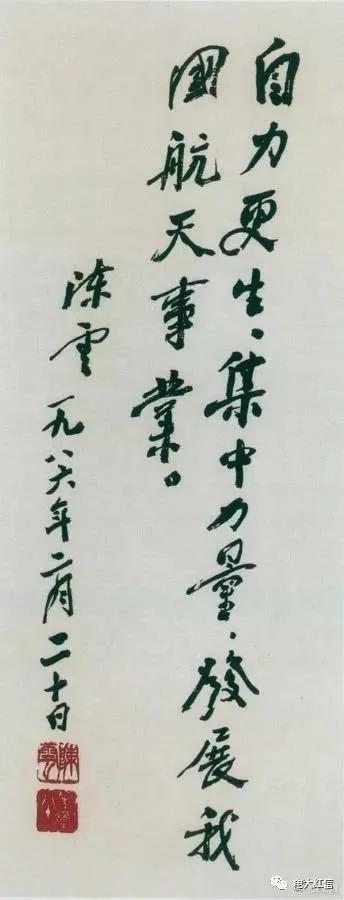 自力更生、集中力量、發展我
國航天事業。
陳雲 一九八六年二月二十日
陳雲
电大红信